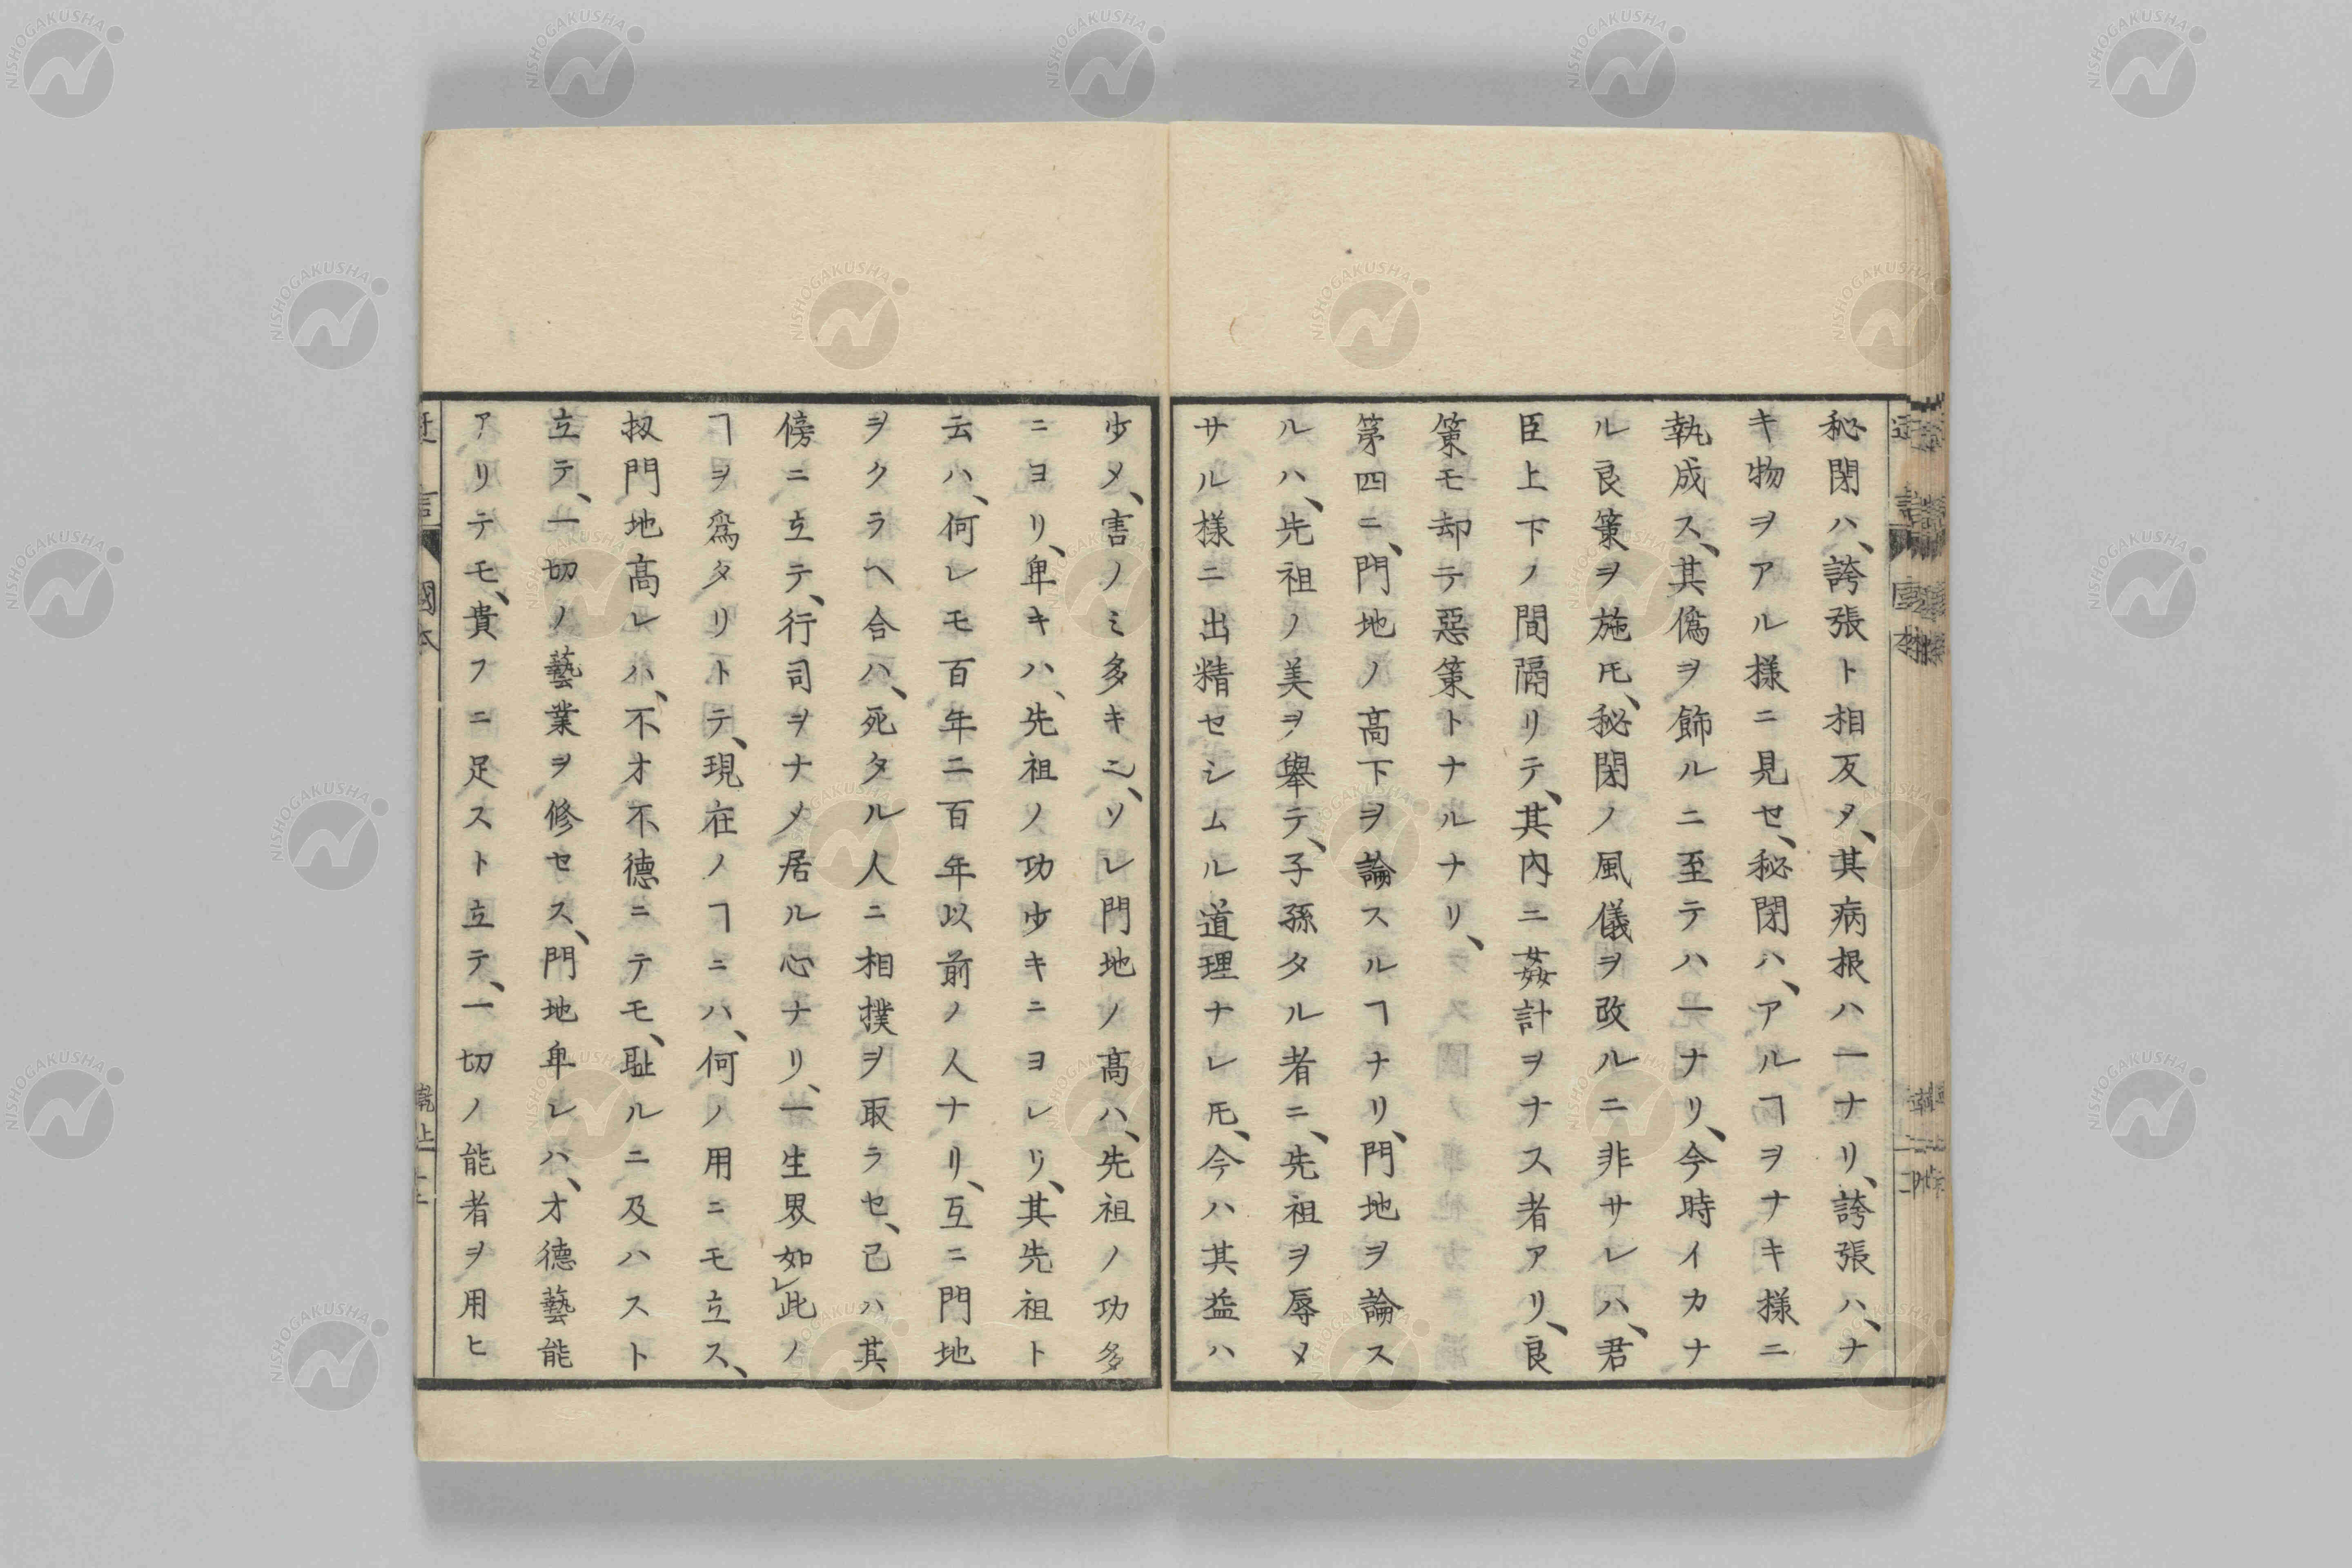 秘閉ハ、誇張ト相反メ、其病根ハ一ナリ、誇張ハ、ナ
キ物ヲアル様ニ見セ、秘閉ハ、アルヿヲナキ様ニ
執成ス、其僞ヲ飾ルニ至テハ一ナリ、今時イカナ
ル良策ヲ施𪜈、秘閉ノ風儀ヲ改ルニ非サレハ、君
臣上下ノ間隔リテ、其内ニ姦計ヲナス者アリ、良
策モ却テ惡策トナルナリ、
第四ニ、門地ノ高下ヲ論スルヿナリ、門地ヲ論ス
ルハ、先祖ノ美ヲ舉テ、子孫タル者ニ、先祖ヲ辱メ
サル様ニ出精セシムル道理ナレ𪜈、今ハ其益ハ
少メ、害ノミ多キニ、ソレ門地ノ高ハ、先祖ノ功多
ニヨリ、卑キハ、先祖ノ功少キニヨレリ、其先祖ト
云ハ、何レモ百年二百年以前ノ人ナリ、互ニ門地
ヲクラヘ合ハ、死タル人ニ相撲ヲ取ラセ、己ハ其
傍ニ立テ、行司ヲナメ居ル心ナリ、一生界如レ此ノ
ヿヲ爲タリトテ、現在ノヿニハ、何ノ用ニモ立ス、
扨門地高レハ、不才不德ニテモ、耻ルニ及ハスト
立テ、一切ノ藝業ヲ修セス、門地卑レハ、才德藝能
アリテモ、貴フニ足スト立テ、一切ノ能者ヲ用ヒ
國本